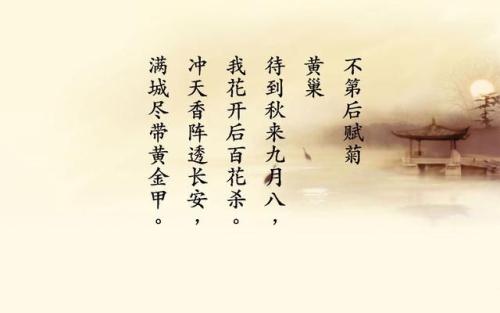 不第后赋菊
黄巢
待到秋来九月八，
我花开后百花杀。
冲天香阵透长安，
满城尽带黄金甲。